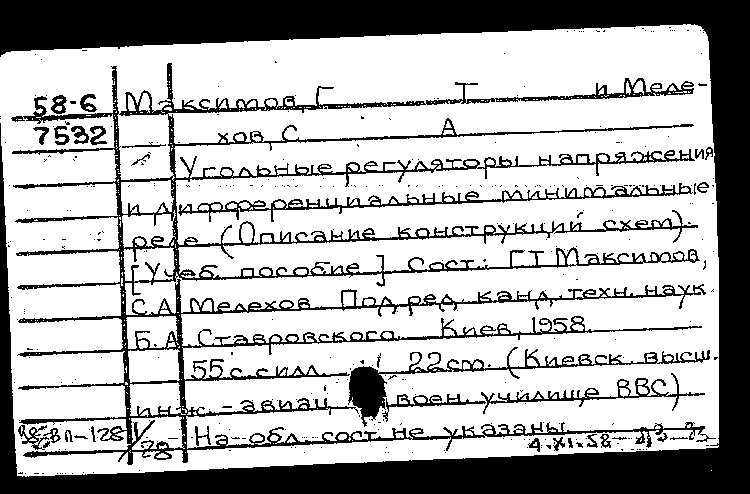 58-6 Максимов, Г Т и Меле-
7532 хов, С А
Угольные регуляторы напряжения
и дифференциальные минимальные
реле (Описание конструкций схем).
[Учеб. пособие] Сост.: Г.Т Максимов,
С.А Мелехов. Под ред. канд. техн. наук
Б.А Ставровского. Киев, 1958.
55 с. с илл. 22 cm. (Киевск. высш.
инж.-авиац. воен. училище ВВС)
ВП-128 1/28 На обл. сост. не указаны
4.XI.58